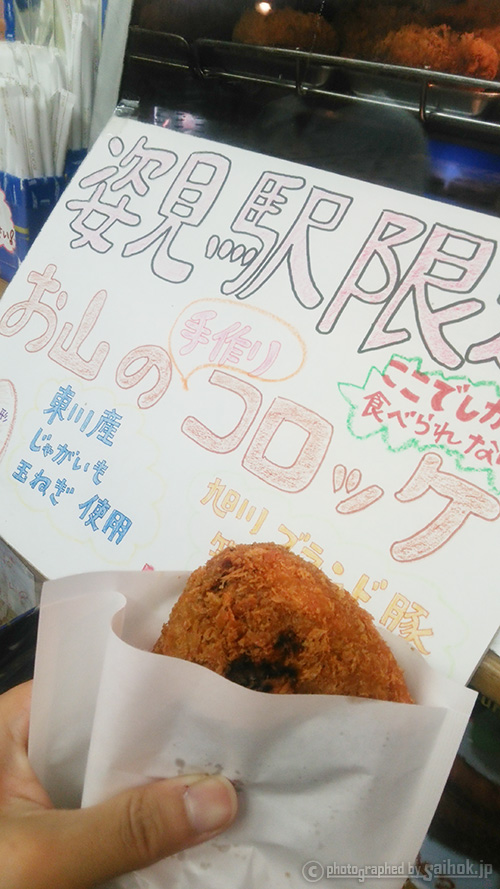 姿見駅限
お山の
手作り
コロッケ
ここでしか
食べられな
東川産
じゃがいも
玉ねぎ 使用
旭川ブランド豚
© photographed by saihok.jp